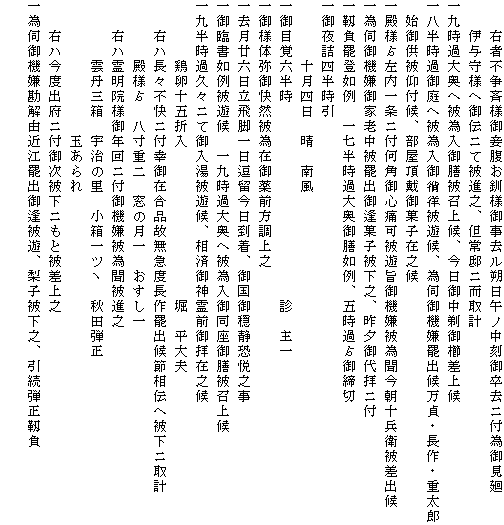 右者不争斉様御妾腹お釧様御事去ル朔日午ノ中刻御卒去ニ付為御見廻
伊与守様へ御伝ニて被進之、但常邸ニ而取計
一九時過大奥へ被為入御膳被召上候、今日御中剃御櫛差上候
一八半時過御庭へ被為入御猶徉被遊候、為伺御機嫌罷出候万貞・長作・重太郎
始御供被仰付候、部屋頂戴御菓子在之候
一殿様ゟ左内一条ニ付何角御心痛可被遊旨御機嫌被為聞今朝十兵衛被差出候
一為伺御機嫌御家老中被罷出御逢菓子被下之、昨夕御代拝ニ付
一靱負罷登如例　一七半時過大奥御膳如例、五時過ゟ御締切
一御夜詰四半時引
十月四日　晴　南風
一御目覚六半時　診　主一
一御様体弥御快然被為在御薬前方調上之
一去月廿六日立飛脚一日逗留今日到着、御国御穏静恐悦之事
一御臨書如例被遊候　一九時過大奥へ被為入御同座御膳被召上候
一九半時過久々ニて御入湯被遊候、相済御神霊前御拝在之候
鶏卵十五折入　堀　平大夫
右ハ長々不快ニ付幸御在合品故無急度長作罷出候節相伝へ被下ニ取計
殿様ゟ　八寸重二　窓の月一　おすし一
右ハ霊明院様御年回ニ付御機嫌被為聞被進之
雲丹三箱　宇治の里　小箱一ツヽ　秋田弾正
玉あられ
右ハ今度出府ニ付御次被下ニもと被差上之
一為伺御機嫌勘解由近江罷出御逢被遊、梨子被下之、引続弾正靱負